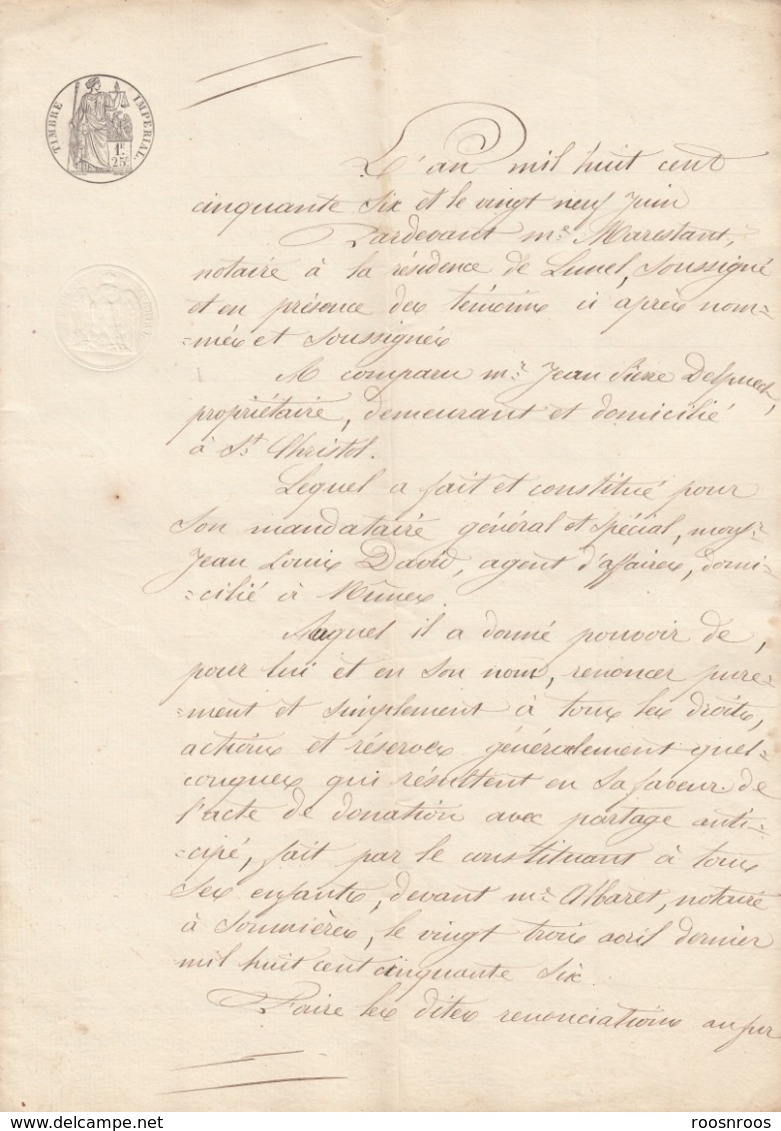 TIMBRE IMPERIAL.
1F.
25c
L'an mil huit cent
cinquante six et le vingt neuf Juin
Pardevant me Marestant,
notaire à la résidence de Lunel, soussigné
et en présence des témoins ci après nom=
=més et soussignés
A comparu mr. Jean Pierre Delpuech,
propriétaire, demeurant et domicilié
à St. Christol.
Lequel a fait et constitué pour
son mandataire général et spécial, monsr.
Jean Louis David, agent d'affaires, domi=
=cilié à Nimes.
Auquel il a donné pouvoir de,
pour lui et en son nom, renoncer pure=
=ment et simplement à tous les droits,
actions et réserves généralement quel=
conques qui résultent en sa faveur de
l'acte de donation avec partage anti=
=cipé, fait par le constituant à tous
ses enfants, devant me Albaret, notaire
à Sommières, le vingt trois avril dernier
mil huit cent cinquante six.
Faire les dites renonciations au pur
roosnroos